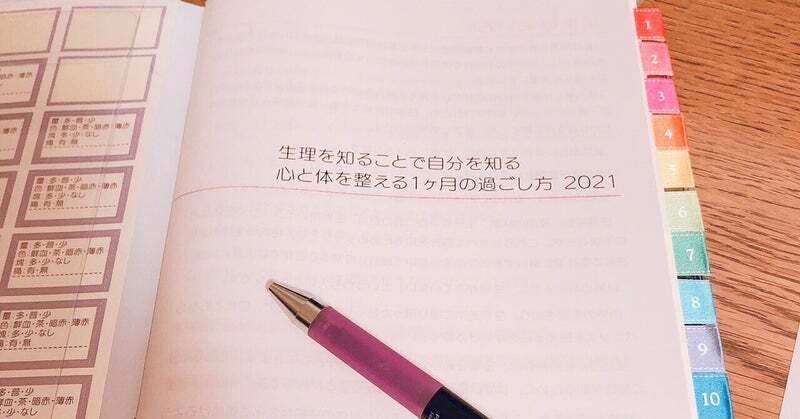 生理を知ることで自分を知る
心と体を整える1ヶ月の過ごし方 2021
量:多・普・少
色:鮮血・茶・暗赤・薄赤
塊:多・少・なし
痛:有・無
量:多・普・少
色:鮮血・茶・暗赤・薄赤
塊:多・少・なし
痛:有・無
量:多・普・少
色:鮮血・茶・暗赤・薄赤
塊:多・少・なし
痛:有・無
量:多・普・少
色:鮮血・茶・暗赤・薄赤
塊:多・少・なし
痛:有・無
1
2
3
4
5
6
7
8
9
10